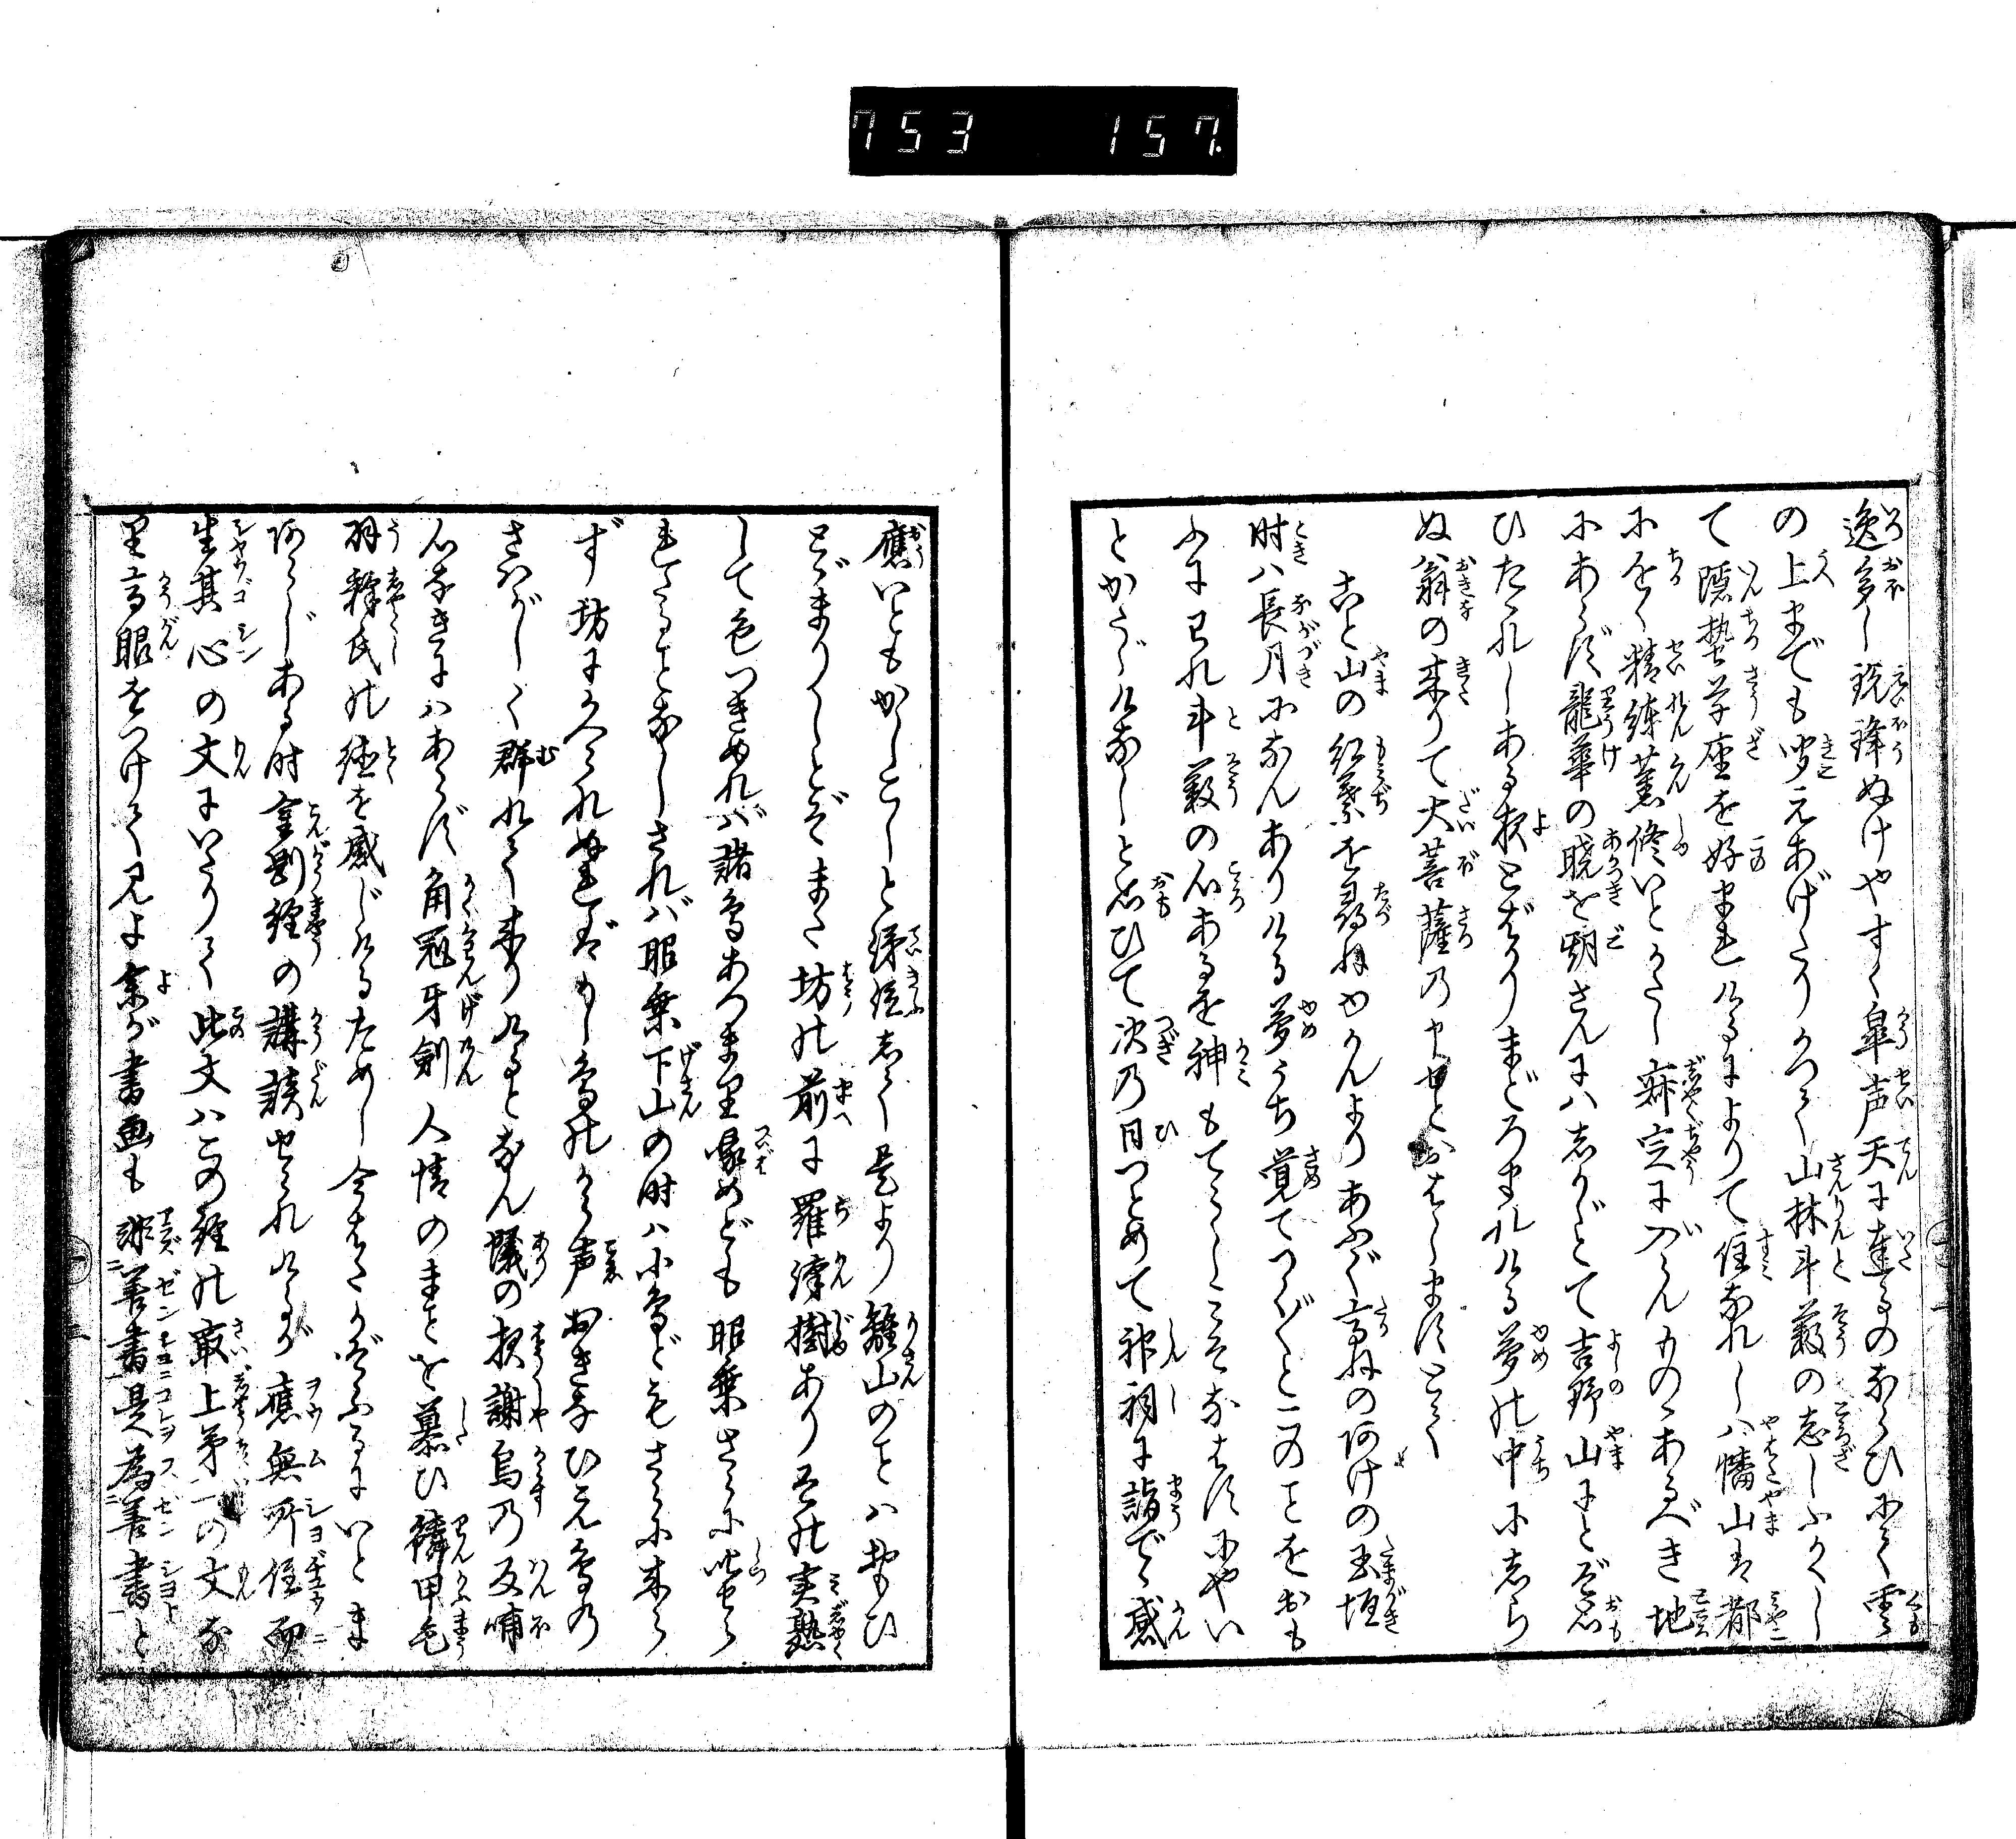 753 157.
逸多し鋭鋒ぬけやすく皐声天に達るのならひにて雲
の上までも聞えあげたりかつて山林斗薮の志しふかくし
て隠蟄草座を好まれけるによりて住なれし八幡山は都
にちかく精練薫修いとかたし寂定に入らんものゝあるべき地
にあらず龍華の暁を期さんにはしかじとて吉野山にとぞ思
ひたゝれしある夜とばかりまどろまれける夢の中にしら
ぬ翁の来りて大菩薩の
こと山の紅葉を尋ねゆかんよりあふぐ高ねのあけの玉垣
時ハ長月になんありける夢うち覚てつらつらとこのことをおも
ふに われ斗薮の心あるを神もてらしこそなはすにやい
とかたじけなしと思ひて次の日つとめて神祠に詣でゝ感
應いともかしこしと涕泣しるく是より離山のことハおもひ
とゞまりしとぞまた坊の前に羅漢樹ありその実熟
して色つきぬれバ諸鳥あつまり啄めども昭乗さらに叱せら
れたることなしされバ昭乗下山の時ハ小鳥どもさらに来ら
ず坊にかへられぬれバもし鳥のから声おきなひこゑ鳥の
さハがしく群れて来りけるとなん蟻の報謝烏の反哺
心なきにハあらず角冠牙剣人情のまことを慕ひ鱗甲毛
羽釋氏の徳を感じけるためし今はたかぞふるにいとま
あらじある時金剛経の講談せられけるが應無所住而
生其心の文にいたりて此文ハこの経の最上第一の文な
り高眼をつけて見よ余が書画も非善書是為善書と